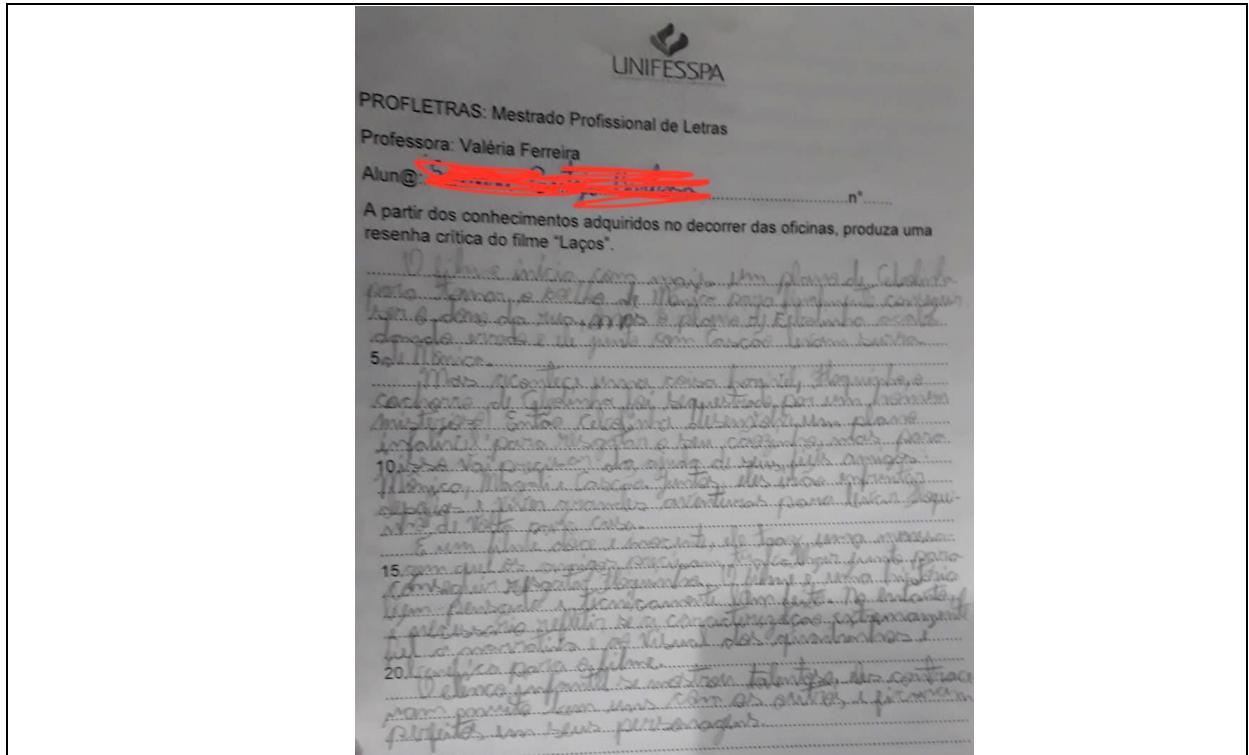 UNIFESSPA
PROFLETRAS: Mestrado Profissional de Letras
Professora: Valéria Ferreira
Alun@: nº
A partir dos conhecimentos adquiridos no decorrer das oficinas, produza uma
resenha crítica do filme “Laços”.
O filme inicia com mais um plano de Cebolinha
para tomar o coelho de Mônica para finalmente conseguir
ser o dono da rua, mas o plano de Cebolinha acaba
dando errado e ele junto com Cascão levam surra
5 de Mônica.
Mas acontece uma coisa horrível, Floquinho, o
cachorro de Cebolinha foi sequestrado por um homem
misterioso. Então Cebolinha desenvolve um plano
infalível para resgatar o seu cãozinho, mas para
10 isso vai precisar da ajuda de seus fiéis amigos:
Mônica, Magali e Cascão. Juntos, eles irão enfrentar
desafios e viver grandes aventuras para levar Floqui-
nho de volta para casa.
É um filme doce e inocente, ele traz uma mensa-
15 gem que os amigos precisam trabalhar junto para
conseguir resgatar Floquinho. O filme é uma história
bem pensado e tecnicamente bem feito. No entanto,
é necessário refletir se a caracterização extremamente
fiel a narrativa e ao visual dos quadrinhos é
20 benéfica para o filme.
O elenco infantil se mostrou talentoso, eles contrace
nam bem uns com os outros e firmam
perfeitos em seus personagens.